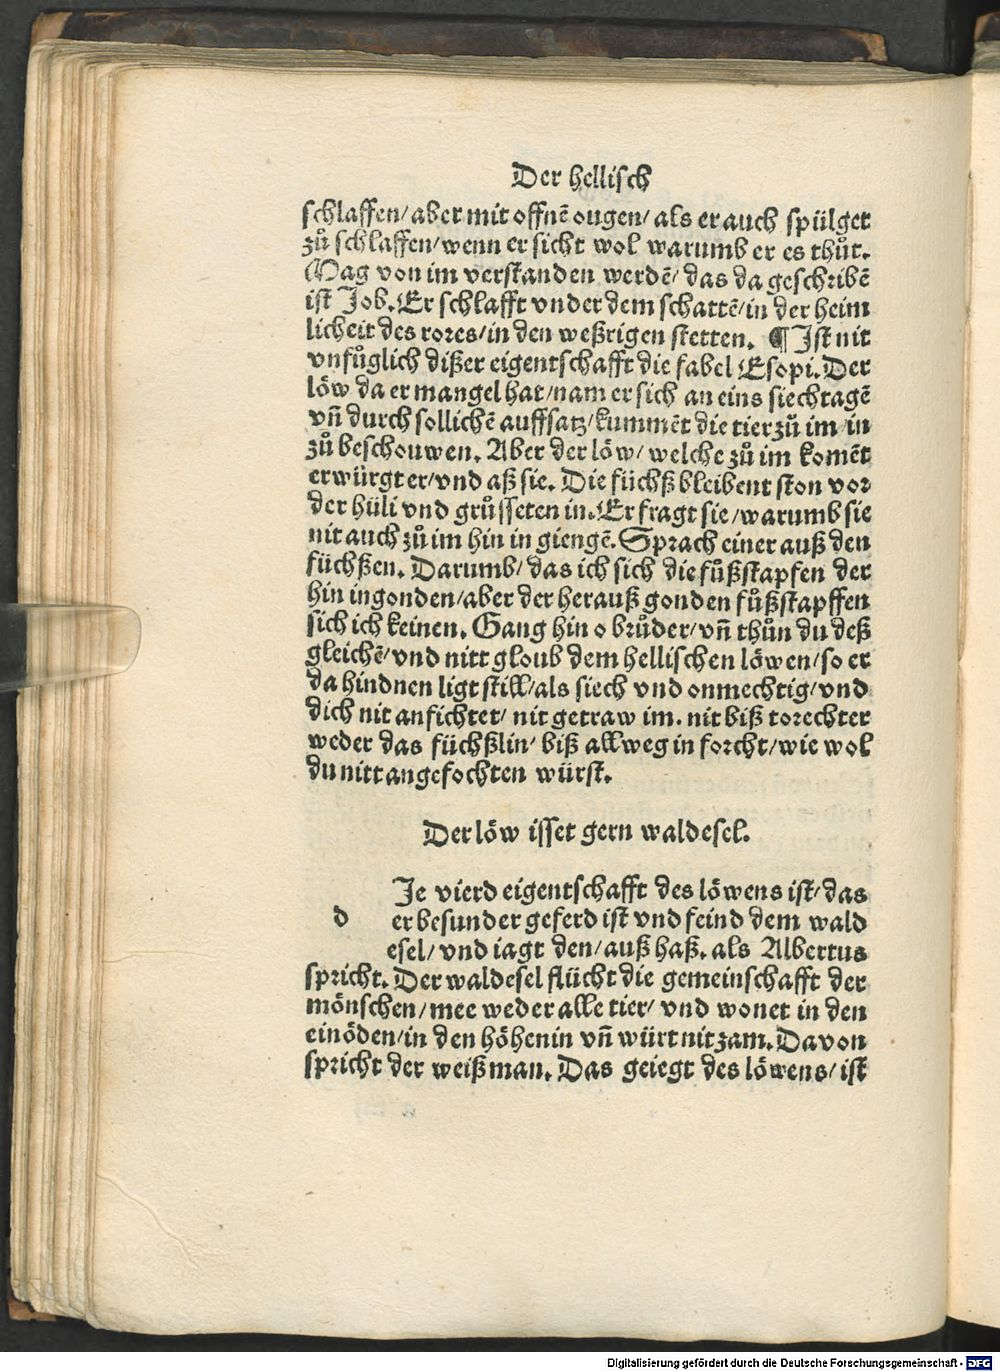 Der hellisch
schlaffen/ aber mit offnē ougen/ als er auch spülget
zů schlaffen/ wenn er sicht wol warumb er es thůt.
Mag von im verstanden werdē/ das da geschribē
ist Job. Er schlafft vnder dem schattē/ in der heim
licheit des rores/ in den weßrigen stetten. ¶ Ist nit
vnfůglich dißer eigentschafft die fabel Esopi. Der
löw da er mangel hat/ nam er sich an eins siechtagē
vñ durch sollichē auffsatz/ kummēt die tier zů im/ in
zů beschouwen. Aber der löw/ welche zů im komēt
erwürgt er/ vnd aß sie. Die füchß bleibent ston vor
der hüli vnd grůsseten in. Er fragt sie/ warumb sie
nit auch zů im hin in giengē. Sprach einer auß den
füchßen. Darumb/ das ich sich die fůßstapfen der
hin ingonden/ aber der herauß gonden fůßstapffen
sich ich keinen. Gang hin o brůder/ vñ thůn du deß
gleichē/ vnd nitt gloub dem hellischen löwen/ so er
da hindnen ligt still/ als siech vnd onmechtig/ vnd
dich nit anfichtet/ nit getraw im. nit biß torechter
weder das füchßlin/ biß allweg in forcht/ wie wol
du nitt angefochten würst.
Der löw isset gern waldesel.
Je vierd eigentschafft des löwens ist/ das
d er besunder geferd ist vnd feind dem wald
esel/ vnd iagt den/ auß haß. als Albertus
spricht. Der waldesel flücht die gemeinschafft der
mönschen/ mee weder alle tier/ vnd wonet in den
einöden/ in den höhenin vñ würt nit zam. Davon
spricht der weißman. Das geiegt des löwens/ ist
Digitalisierung gefördert durch die Deutsche Forschungsgemeinschaft - DFG